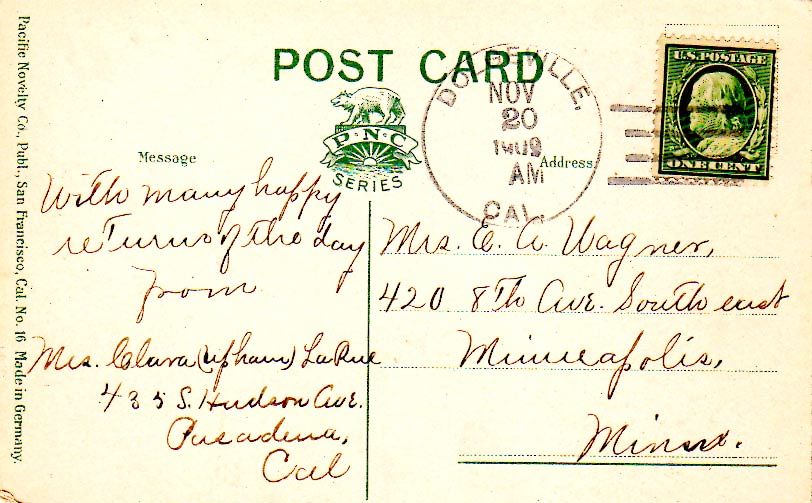 POST CARD
P·N·C
SERIES
Message
Address
DOLGEVILLE,
NOV
20
1909
AM
CAL.
U.S. POSTAGE
ONE CENT
With many happy
returns of the day
from
Mrs. Clara (Upham) LaRue
435 S. Hudson Ave.
Pasadena,
Cal
Mrs. C. A. Wagner,
420 8th Ave. South east
Minneapolis,
Minn.
Pacific Novelty Co., Publ., San Francisco, Cal. No. 16 Made in Germany.